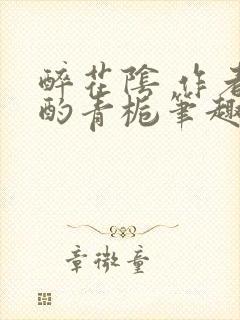 醉花陰 作者
酌青梔筆趣
章微童